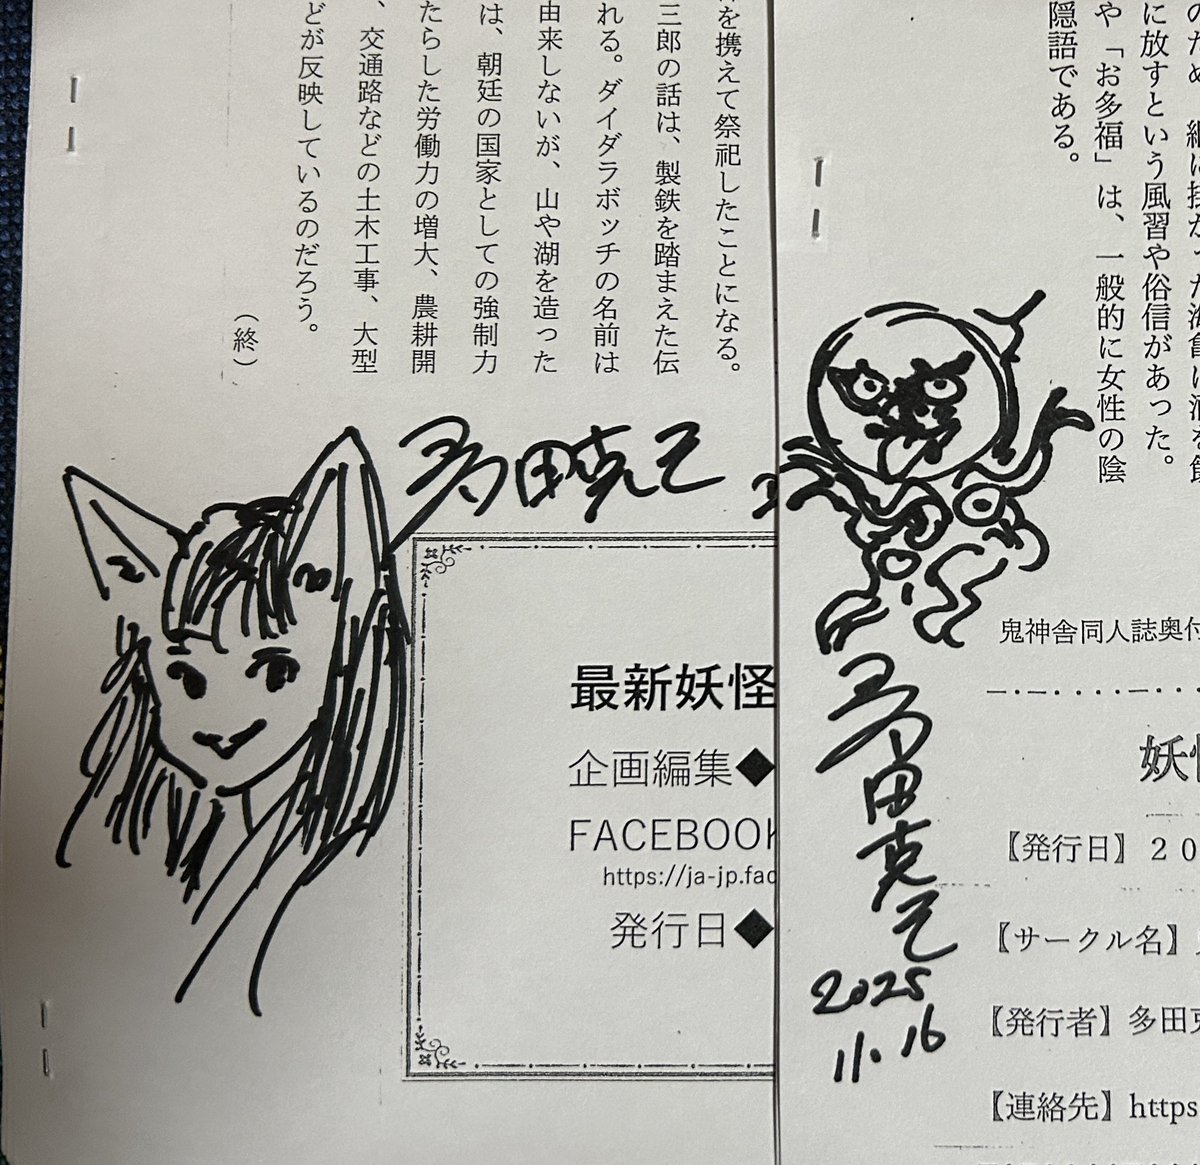 を携えて祭祀したことになる。
三郎の話は、製鉄を踏まえた伝
れる。ダイダラボッチの名前は
由来しないが、山や湖を造った
は、朝廷の国家としての強制力
たらした労働力の増大、農耕開
、交通路などの土木工事、大型
どが反映しているのだろう。
（終）
多田克己
最新妖怪
企画編集◆
FACEBOOK
https://ja-jp.fac
発行日◆
に放すという風習や俗信があった。
や「お多福」は、一般的に女性の陰
隠語である。
多田克己
2025
11.16
鬼神舎同人誌奥付
妖怪
【発行日】２０
【サークル名】
【発行者】多田克
【連絡先】https